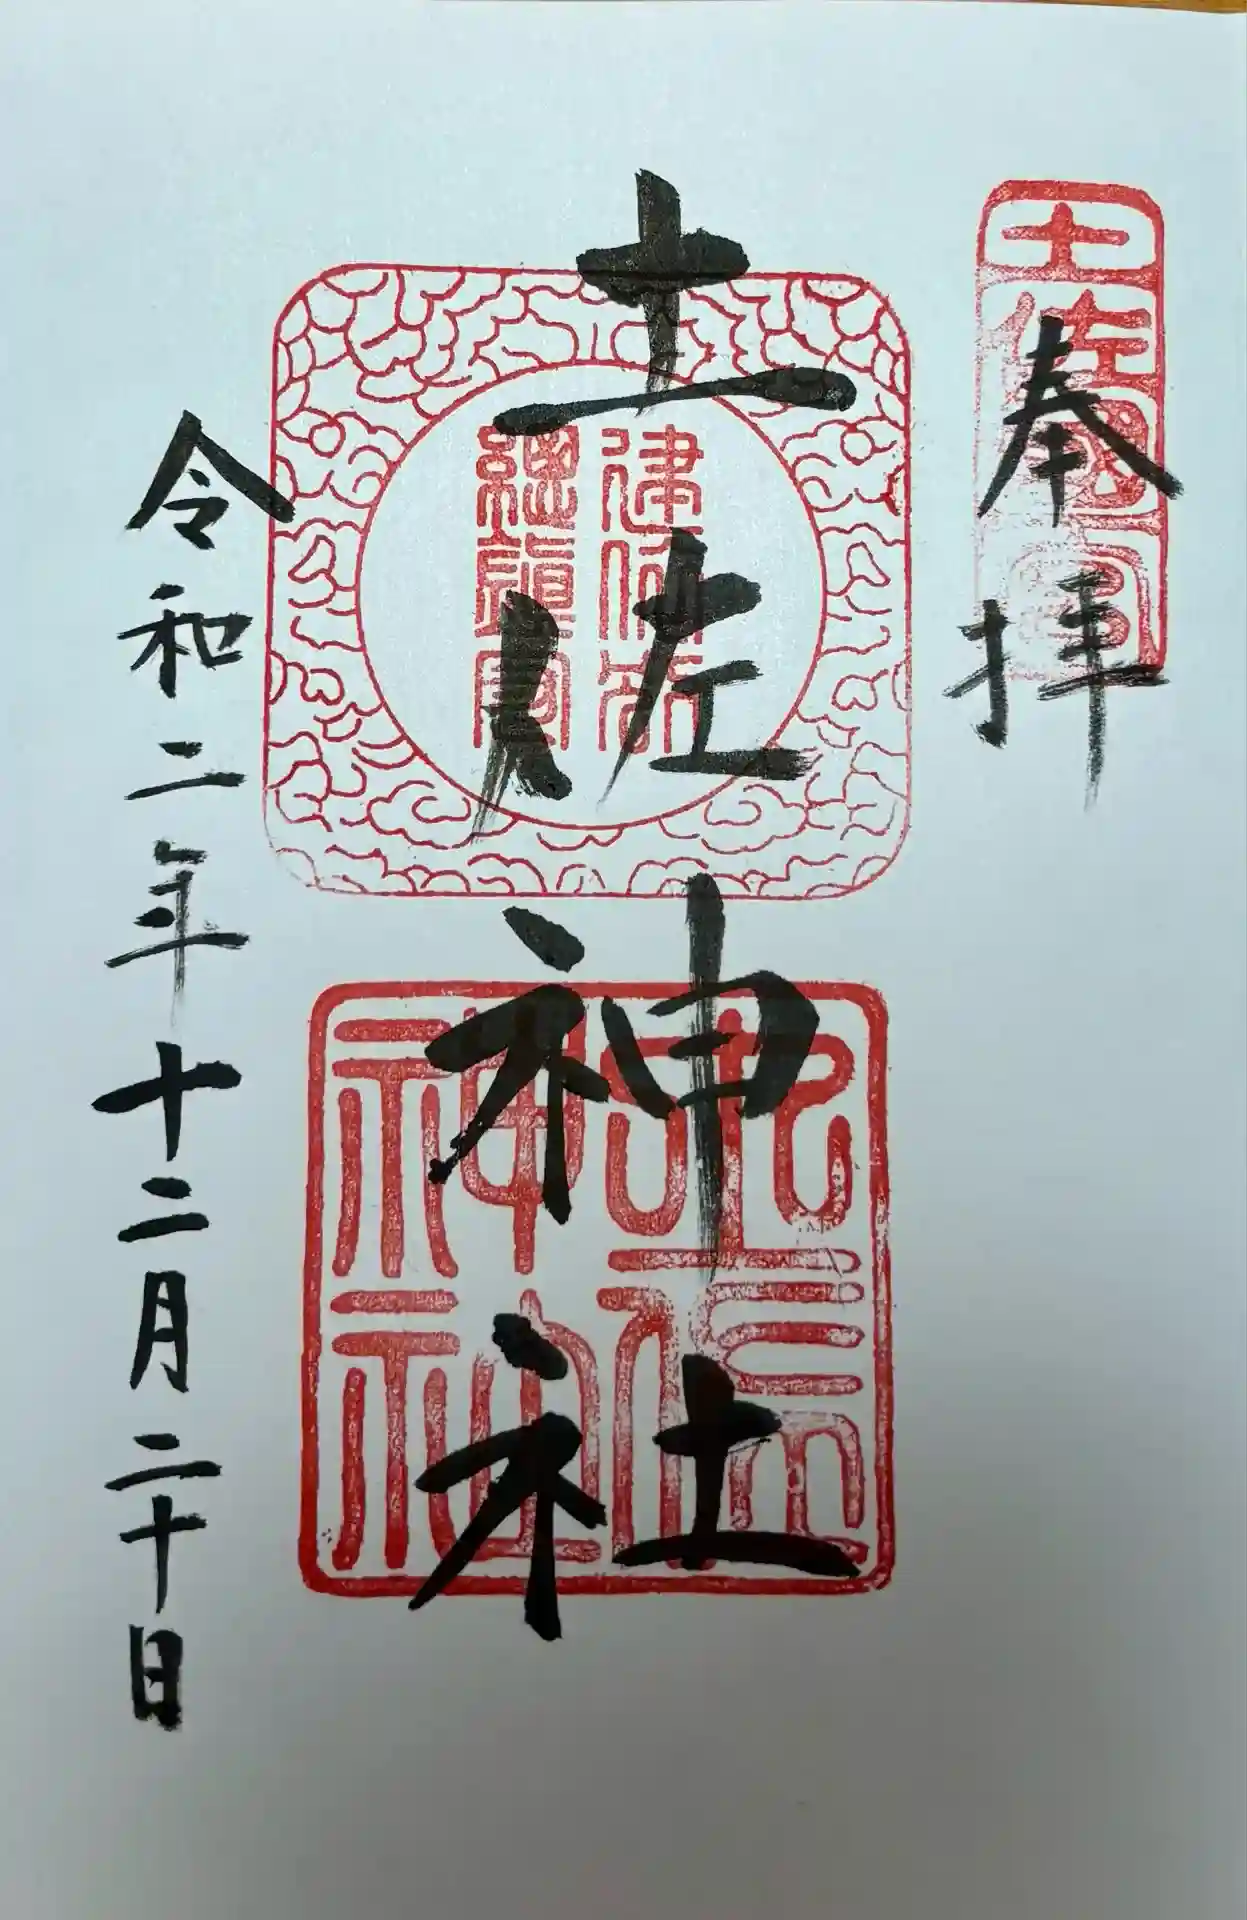 土佐國一宮
奉拝
土佐神社
建依別
土佐
神社
令和二年十二月二十日